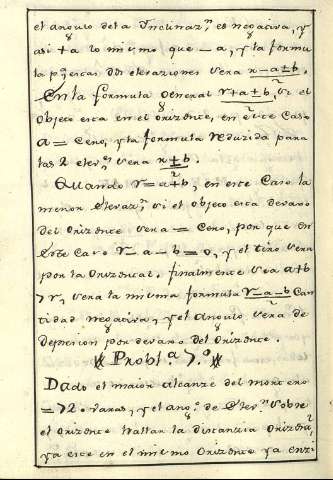 el angulo de la Inclinaz.ⁿ es negativa, y
asi +a lo mismo que −a, y la formu
la p.ª estas dos elevaziones sera r−a±b.
                                    2
En la formula general r+a±b, si el
                        2
objeto esta en el orizonte, en este Caso
a = Cero, y la formula reduzida para
las 2 elev.ⁿ sera r±b.
                   2
Quando r=a+b, en este Caso la
menor Elevaz.ⁿ si el objeto esta devaxo
del Orizonte sera = Cero, por que en
Este caso r−a−b=0, y el tiro sera
por la Orizontal. finalmente sea a+b
>r, sera la misma formula r−a−b Can
                            2
tidad negativa, y el Angulo sera de
Depresion por devaxo del Orizonte.
Probl.ª 7.º
Dado el maior alcanze del mortero
=72. varas, y el ang.º de Elev.ⁿ sobre
el orizonte hallar la distanzia Orizon.
ya este en el mismo Orizonte ya enzi